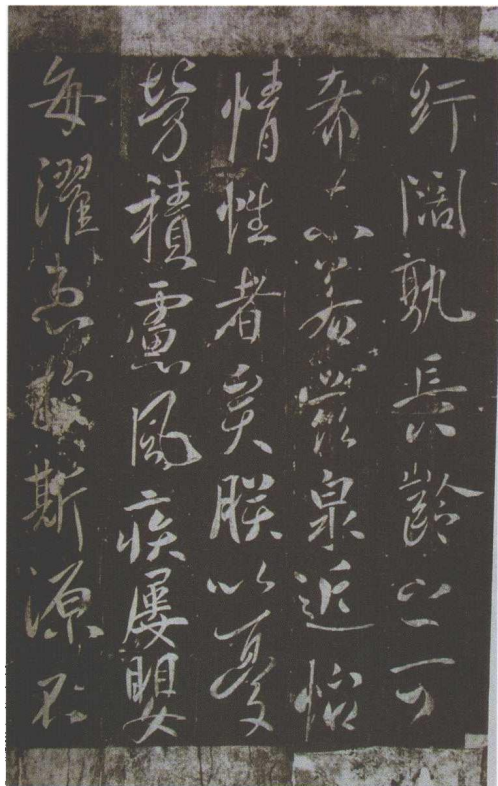 紆闊孰長齡之可
希未若巖泉近怡
情性者矣朕以憂
勞積慮風疾屢嬰
每濯患於斯源不